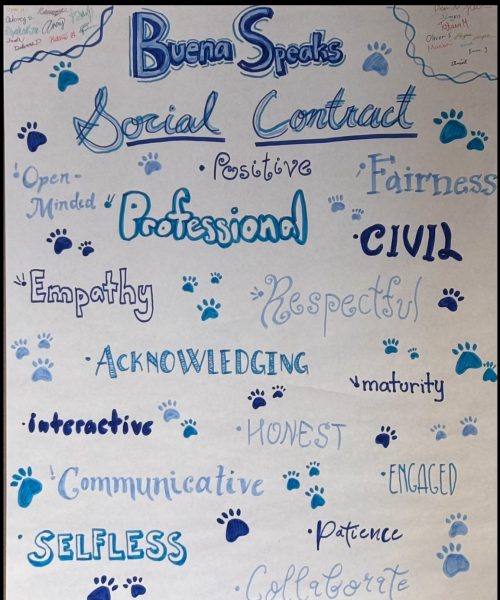 Buena Speaks
Social Contract
• Positive
Open-
Minded
Fairness
Professional
• CIVIL
Empathy
Respectful
• ACKNOWLEDGING
maturity
• interactive
• HONEST
Communicative
• ENGAGED
• Patience
• SELFLESS
• Collaborate